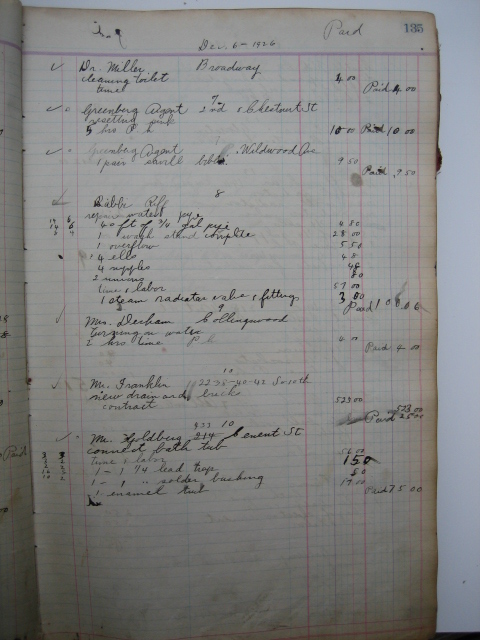 Paid 135
Dec. 6 - 1926
Dr. Miller Broadway
cleaning toilet 4 00
time Paid 4 00
7
Greenberg Agent 2nd & Chestnut St
resetting sink
5 hrs P. h 10 00 Paid 10 00
Greenberg Agent Wildwood Ave
1 pair bibbs 9 50
Paid 9 50
8
Rabbi Riff
repair water pipe
40 ft of 3/4 gal pipe 4 80
1 wash stand complete 28 00
1 overflow 5 50
4 ells 48
4 nipples 48
2 unions 80
time & labor 57 00
1 steam radiator valve & fittings 3 00
Paid
9
Mrs. Decham Collingswood
turning on water 4 00
2 hrs time P. h Paid 4 00
10
Mr. Franklin 2238-40-42 So 10th
new drain and bricks
contract 523 00
523 00
Paid
933 10
Mr. Goldberg 214 Cement St
connect bath tub
time & labor 56 00
1 - 1 1/4 lead trap 150
1 - 1 " solder bushing 50
1 enamel tub 17 00
Paid 75 00
Paid